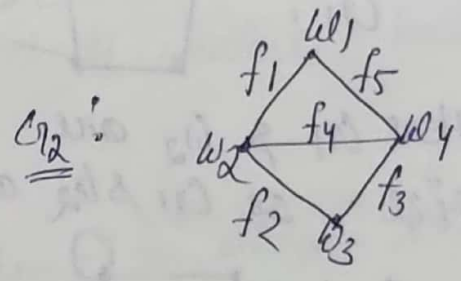 w1
f1 f5
G2 : w2 f4 w4
f2 f3
w3